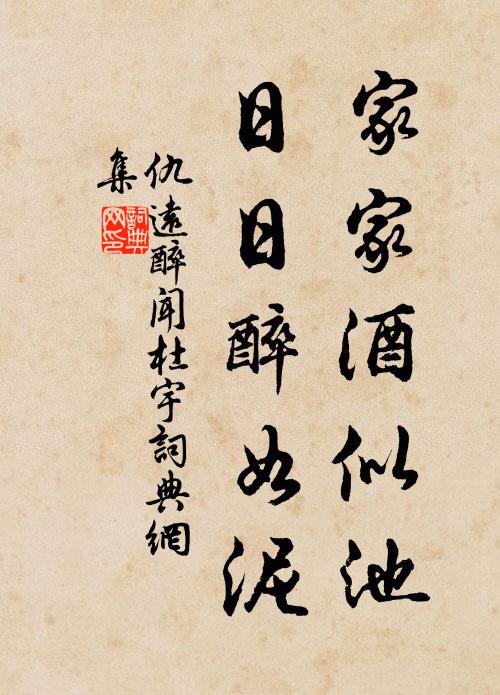 家家酒似池
日日醉如泥
仇遠醉聞杜宇詞典網
集
詞典
网印